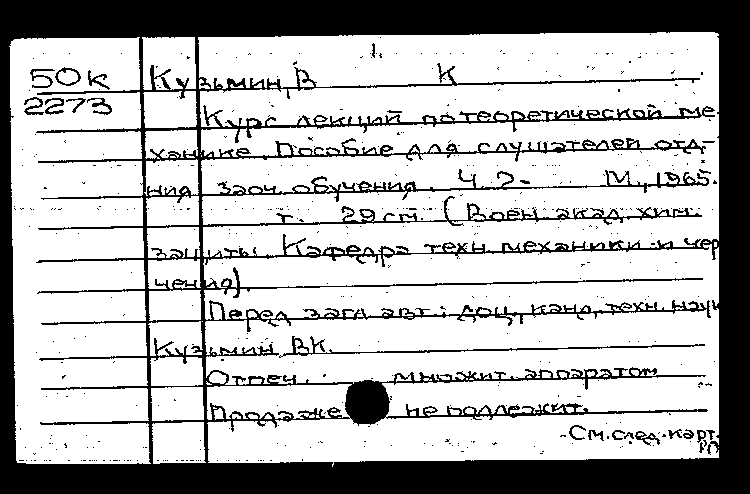 1.
50к Кузьмин, В К
2273
Курс лекций по теоретической ме-
ханике. Пособие для слушателей отд-
ния заоч. обучения. Ч. 2- М., 1965.
т. 29 см. (Воен. акад. хим.
защиты. Кафедра техн. механики и чер
чения).
Перед загл. авт.: доц., канд. техн. наук
Кузьмин В К.
Отпеч. множит. аппаратом
Продаже не подлежит.
-См. след. карт.